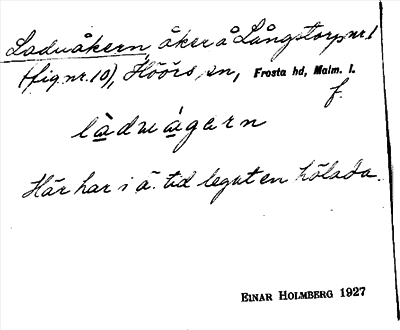 Laduåkern, åker å Långstorp nr 1
(fig. nr. 10), Höörs sn, Frosta hd, Malm. l.
f.
làdueágarn
Här har i ä. tid legat en hölada.
EINAR HOLMBERG 1927